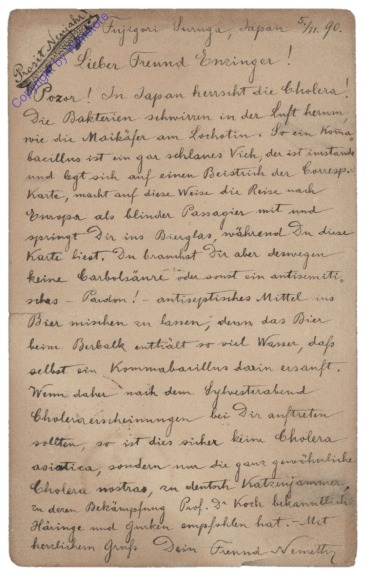 Prosit Neujahr!
Fujigori Suruga, Japan 5/11. 90.
Lieber Freund Enzinger!
Pozor! In Japan herrscht die Cholera!
Die Bakterien schwirren in der Luft herum,
wie die Maikäfer am Lochotin. So ein Koma-
bacillus ist ein gar schlaues Vieh, der ist imstande
und legt sich auf einen Beistrich der Corresp.-
Karte, macht auf diese Weise die Reise nach
Europa als blinder Passagier mit und
springt Dir ins Bierglas, während Du diese
Karte liest. Du brauchst Dir aber deswegen
keine Carbolsäure oder sonst ein antisemiti-
sches - Pardon! - antiseptisches Mittel ins
Bier mischen zu lassen, denn das Bier
beim Berbalk enthält so viel Wasser, daß
selbst ein Kommabacillus darin ersauft.
Wenn daher nach dem Sylvesterabend
Choleraerscheinungen bei Dir auftreten
sollten, so ist dies sicher keine Cholera
asiatica, sondern nur die ganz gewöhnliche
Cholera nostras, zu deutsch Katzenjammer,
zu deren Bekämpfung Prof. Dr Koch bekanntlich
Häringe und Gurken empfohlen hat. - Mit
herzlichem Gruß Dein Freund Nemethy